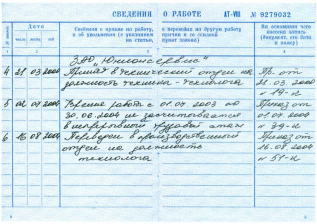 СВЕДЕНИЯ О РАБОТЕ АТ-VIII № 9279032
Дата
Сведения о приеме на работу,
о переводах на другую работу
и об увольнении (с указанием
причин и ссылкой на статью,
пункт закона)
На основании чего
внесена запись
(документ, его дата
и номер)
число месяц год
1 2 3 4
ЗАО "Юнионсервис"
4 21 03 2000 Принят в технический отдел на Пр. от
должность техника-технолога 21.03.2000
№ 19-к
5 02 07 2004 Время работы с 01.07.2003 по Приказ от
30.06.2004 не засчитывается 01.07.2004
в непрерывный трудовой стаж № 39-к
6 16 08 2004 Переведен в производственный Приказ от
отдел на должность 16.08.2004
технолога № 51-к